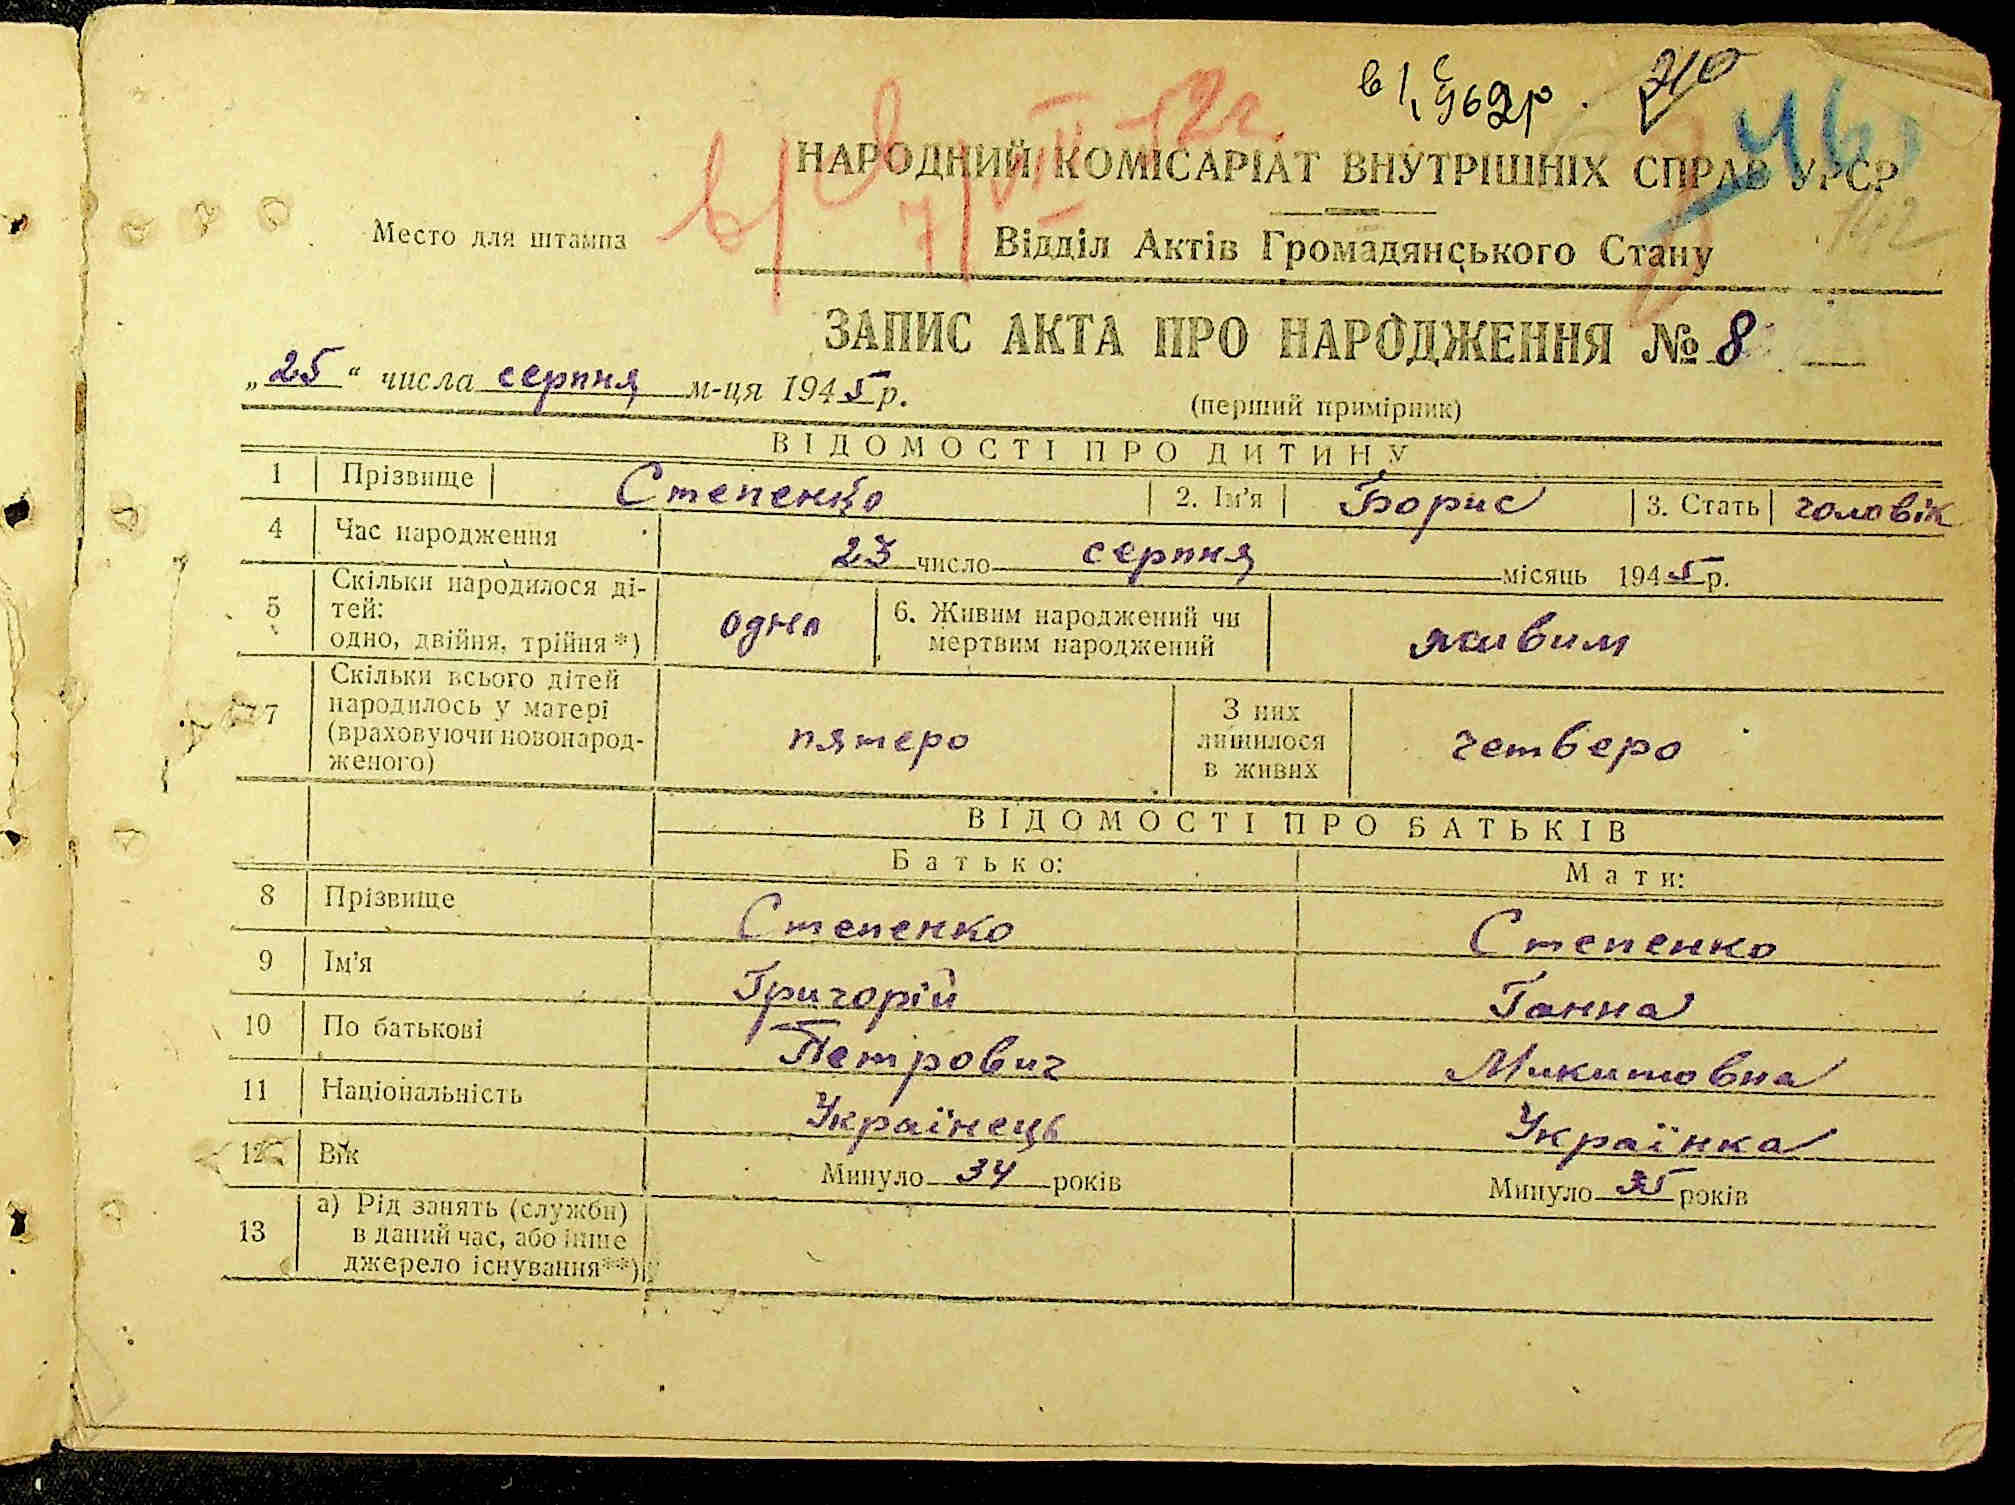 210
46
142
НАРОДНИЙ КОМІСАРІАТ ВНУТРІШНІХ СПРАВ УРСР
Место для штампа
Відділ Актів Громадянського Стану
ЗАПИС АКТА ПРО НАРОДЖЕННЯ № 8
„25“ числа серпня м-ця 1945 р.
(перший примірник)
ВІДОМОСТІ ПРО ДИТИНУ
1 Прізвище Степенко 2. Ім'я Борис 3. Стать чоловік
4 Час народження 23 число серпня місяць 1945 р.
5 Скільки народилося ді-
тей:
одно, двійня, трійня*) одно 6. Живим народжений чи
мертвим народжений живим
7 Скільки всього дітей
народилось у матері
(враховуючи новонарод-
женого) пятеро З них
лишилося
в живих четверо
ВІДОМОСТІ ПРО БАТЬКІВ
Батько: Мати:
8 Прізвище Степенко Степенко
9 Ім'я Григорій Ганна
10 По батькові Петрович Микитовна
11 Національність Українець Українка
12 Вік Минуло 34 років Минуло 35 років
13 а) Рід занять (служби)
в даний час, або інше
джерело існування**)